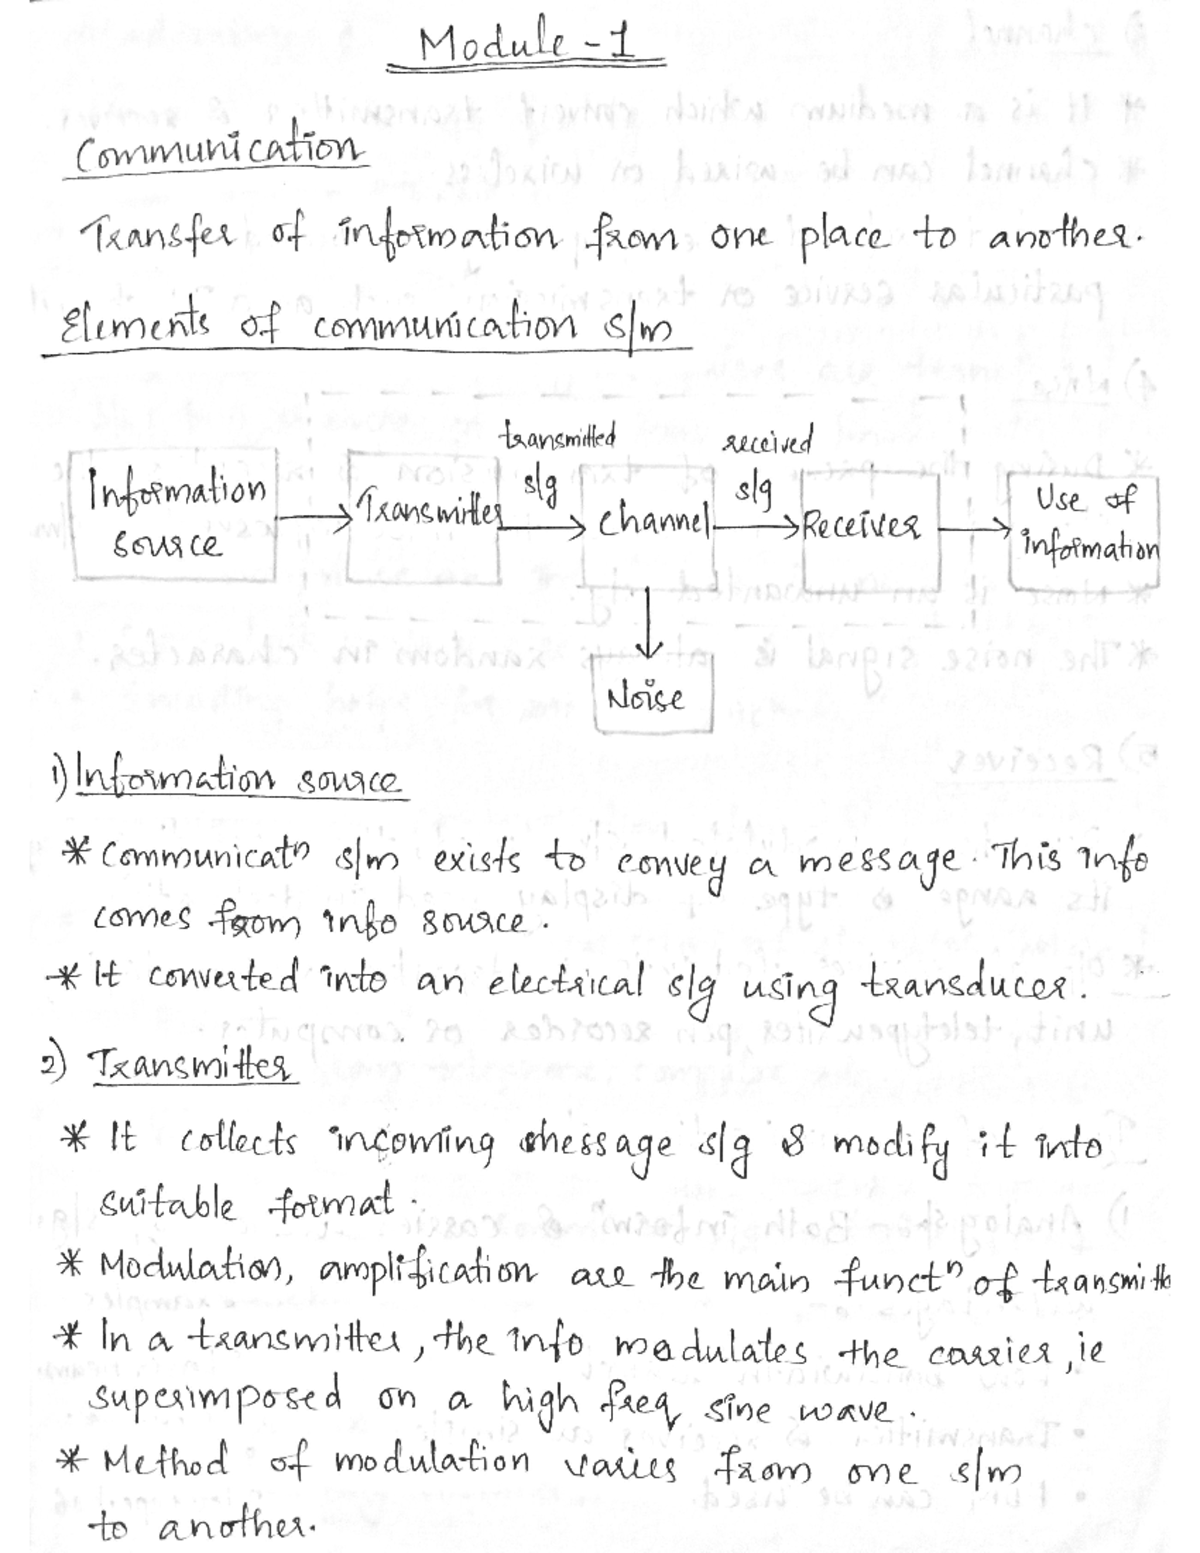 Module - 1
Communication
Transfer of information from one place to another.
Elements of communication s/m
transmitted
received
Information
source
Transmitter
s/g
channel
s/g
Receiver
Use of
information
Noise
1) Information source
* Communicatn s/m exists to convey a message. This info
comes from info source.
* It converted into an electrical s/g using transducer.
2) Transmitter
* It collects incoming message s/g & modify it into
suitable format.
* Modulation, amplification are the main functn of transmitte
* In a transmitter, the info modulates the carrier, ie
superimposed on a high freq sine wave.
* Method of modulation varies from one s/m
to another.